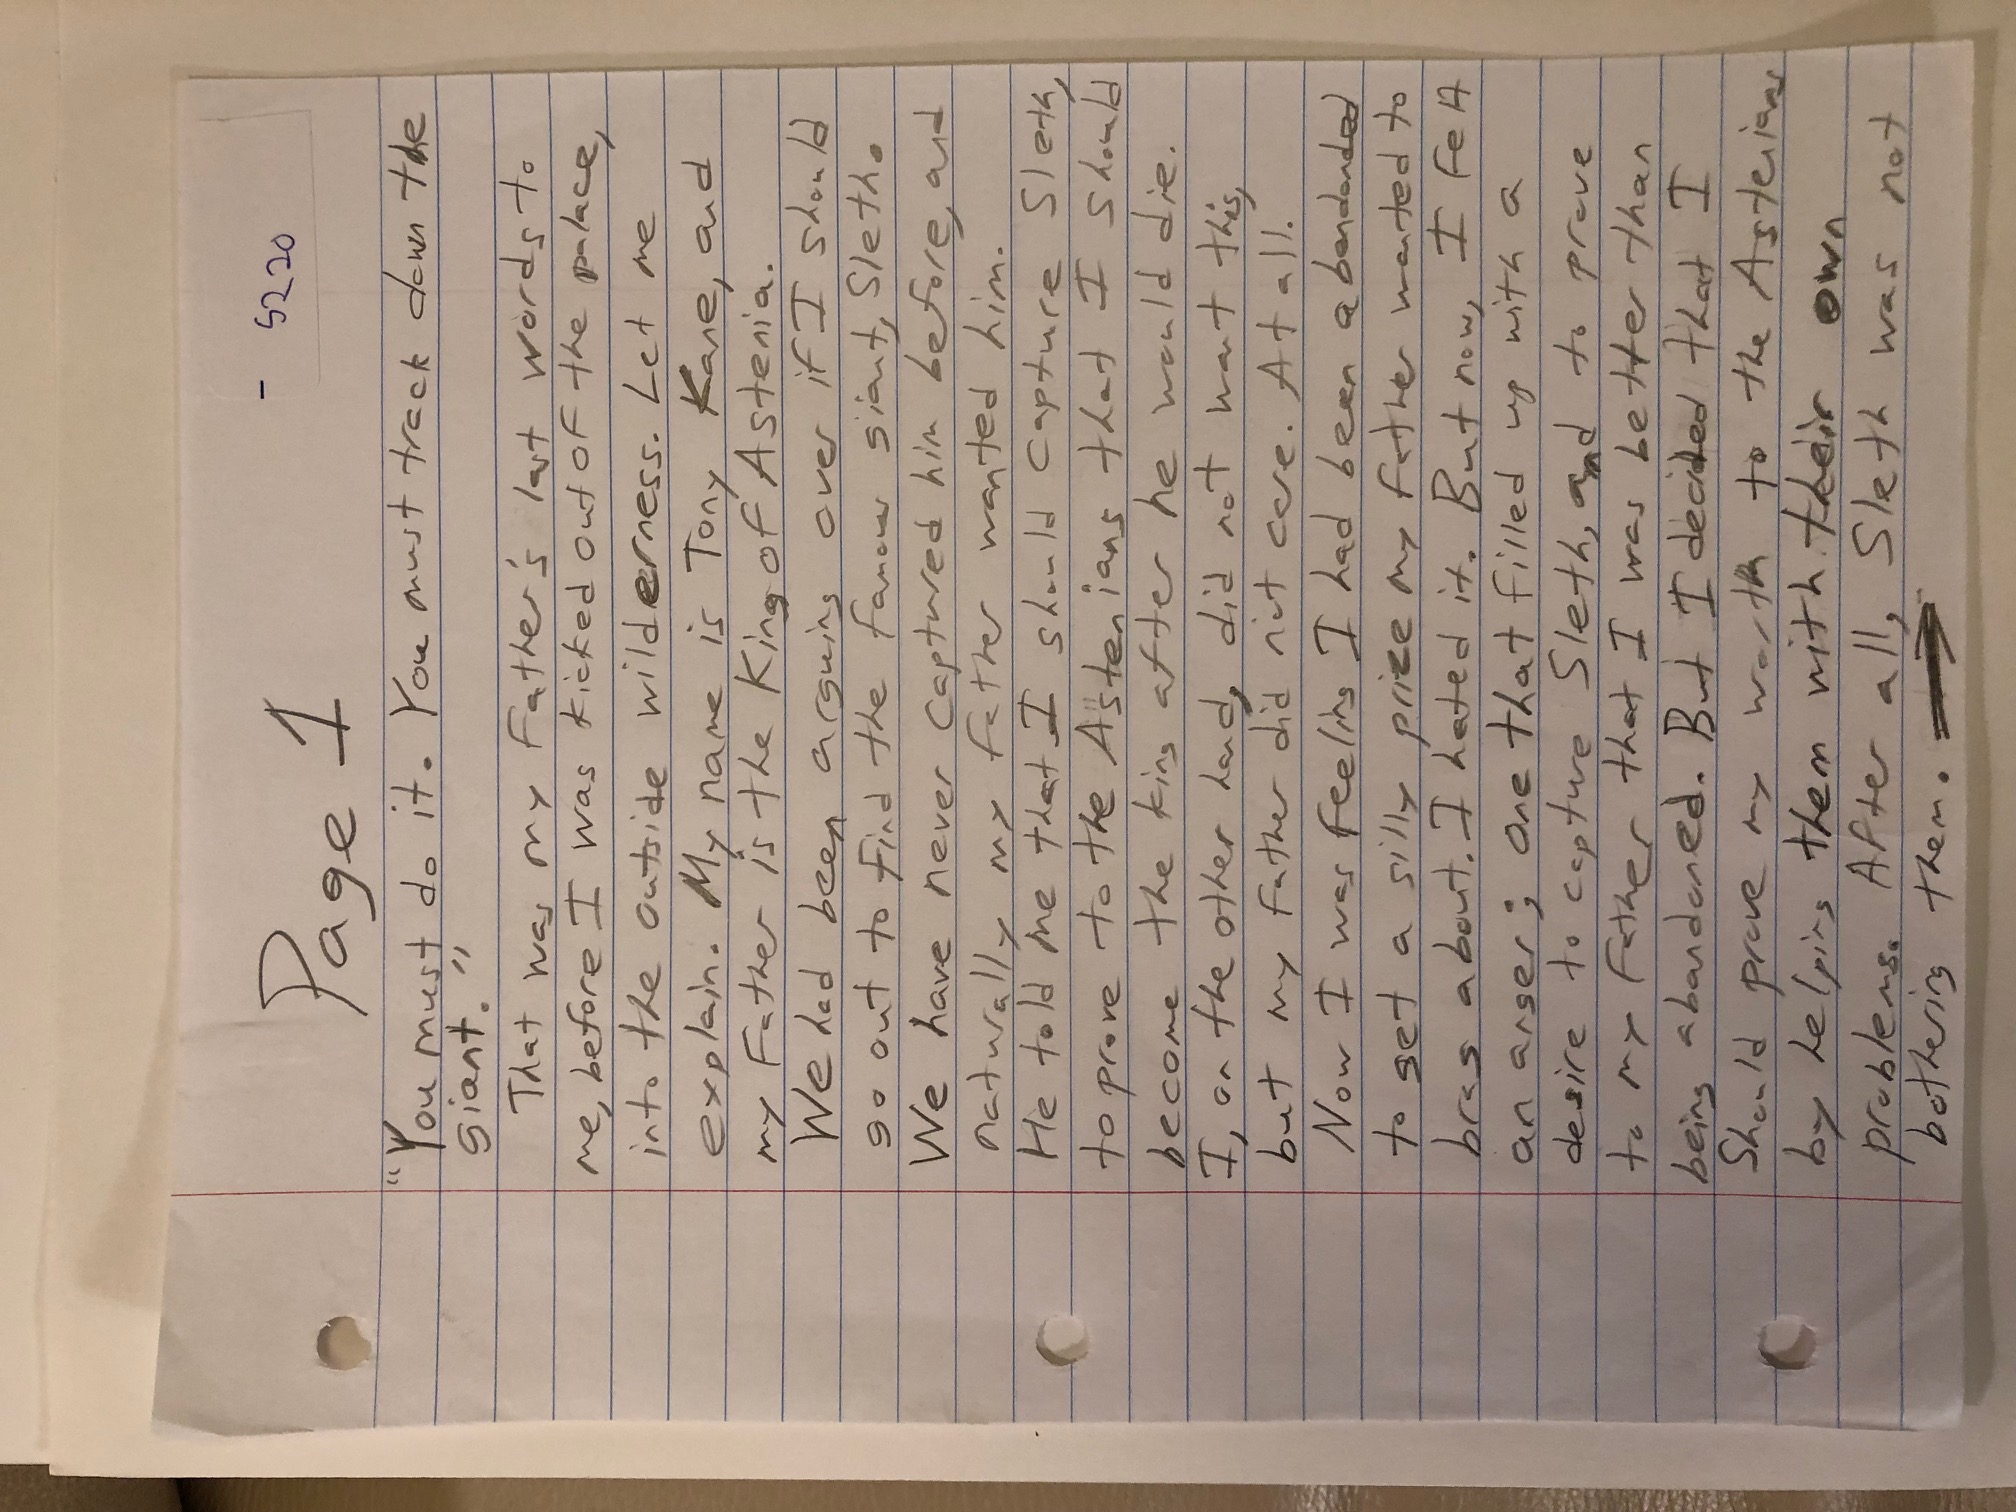 - 5220
Page 1
"You must do it. You must track down the
giant."
That was my Father's last words to
me, before I was kicked out of the palace,
into the outside wilderness. Let me
explain. My name is Tony Kane, and
my Father is the King of Astenia.
We had been arguing over if I should
go out to find the famous giant, Sleth.
We have never captured him before, and
naturally my father wanted him.
He told me that I should capture Sleth,
to prove to the Astenians that I should
become the king after he would die.
I, on the other hand, did not want this,
but my father did not care. At all.
Now I was feeling I had been abandonded
to get a silly prize my father wanted to
brag about. I hated it. But now, I felt
an anger; one that filled up with a
desire to capture Sleth, and to prove
to my father that I was better than
being abandoned. But I decided that I
Should prove my worth to the Astenians
by helping them with their own
problems. After all, Sleth was not
bothering them. →